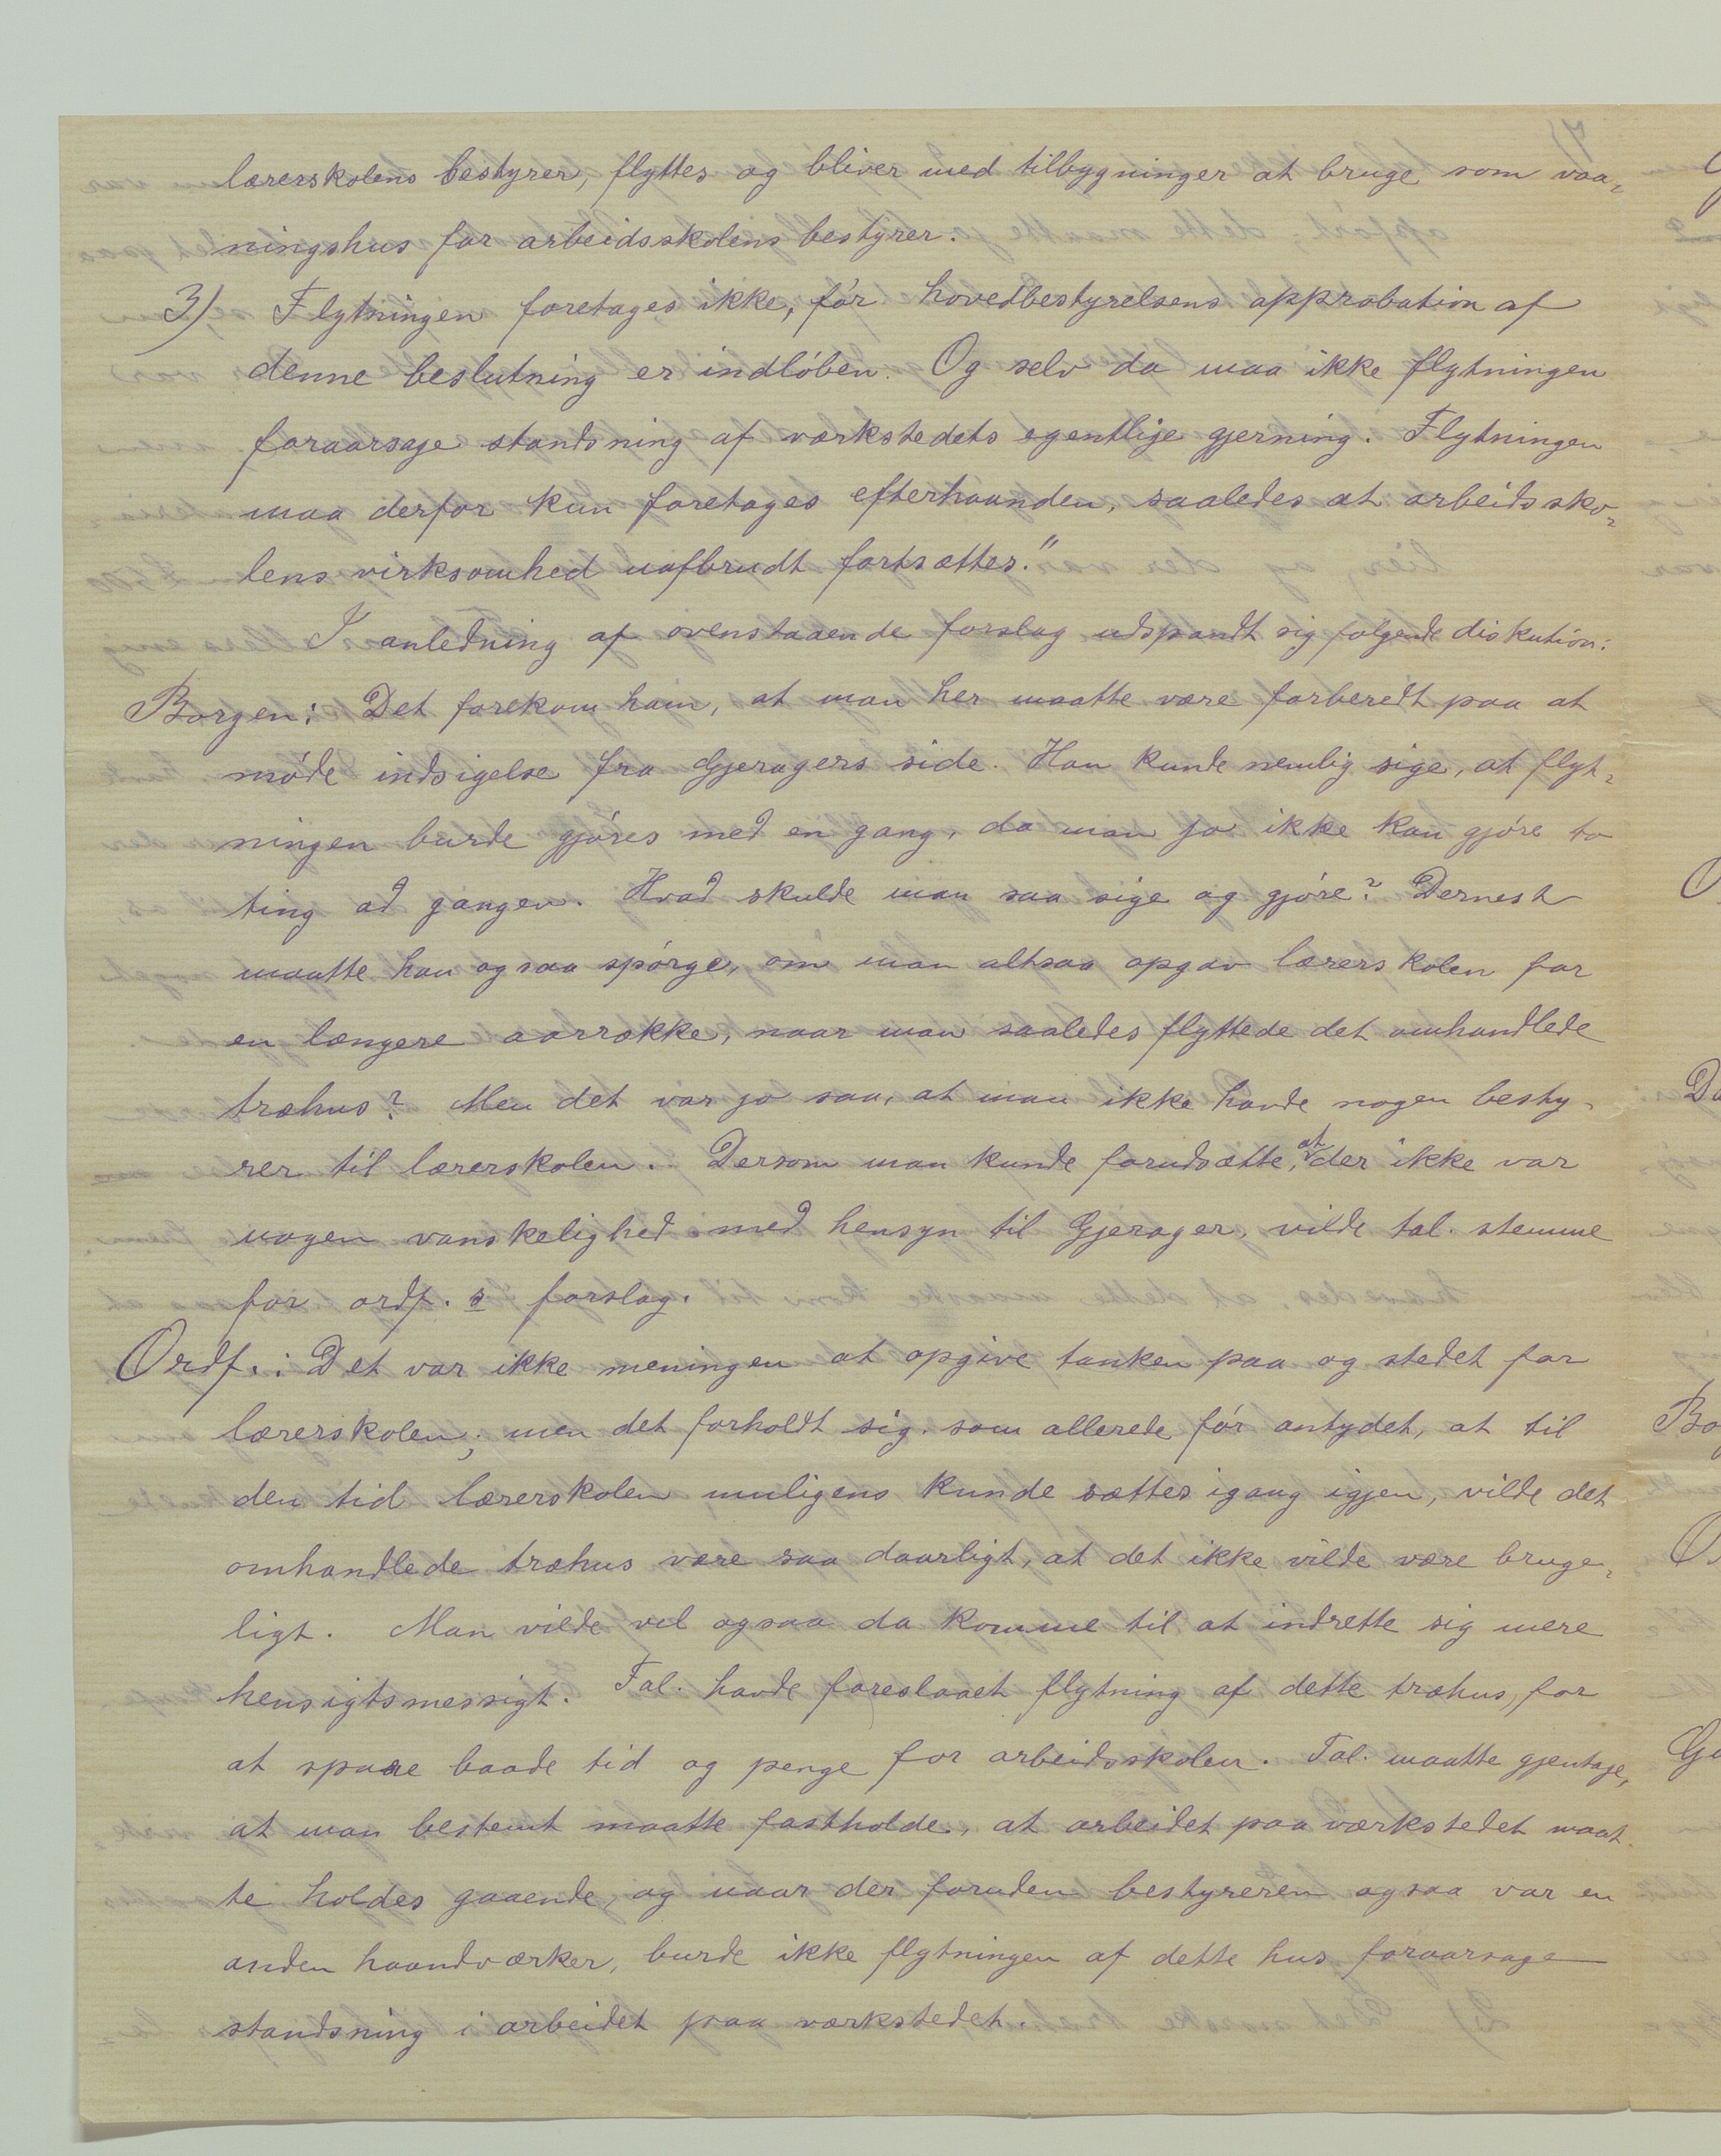 lærerskolens bestyrer, flyttes og bliver med tilbygninger at bruge som vaa-
ningshus for arbeidsskolens bestyrer.
3) Flytningen foretages ikke, før hovedbestyrelsens approbation af
denne beslutning er indløben. Og selv da maa ikke flytningen
foraarsage standsning af værkstedets egentlige gjerning. Flytningen
maa derfor kun foretages efterhaanden, saaledes at arbeidssko-
lens virksomhed uafbrudt fortsættes."
I anledning af ovenstaaende forslag udspandt sig følgende diskution:
Borgen: Det forekom ham, at man her maatte være forberedt paa at
møde indsigelse fra Gjeragers side. Han kunde nemlig sige, at flyt-
ningen burde gjøres med en gang, da man jo ikke kan gjøre to
ting ad gangen. Hvad skulde man saa sige og gjøre? Dernest
maatte han ogsaa spørge, om man altsaa opgav lærerskolen for
en længere aarrække, naar man saaledes flyttede det omhandlede
træhus? Men det var jo saa, at man ikke havde nogen besty-
rer til lærerskolen. Dersom man kunde forudsætte, at der ikke var
nogen vanskelighed med hensyn til Gjerager, vilde tal. stemme
for ordf.s forslag.
Ordf.: Det var ikke meningen at opgive tanken paa og stedet for
lærerskolen; men det forholdt sig, som allerede før antydet, at til
den tid lærerskolen muligens kunde sættes igang igjen, vilde det
omhandlede træhus være saa daarligt, at det ikke vilde være bruge-
ligt. Man vilde vel ogsaa da komme til at indrette sig mere
hensigtsmessigt. Tal. havde foreslaaet flytning af dette træhus, for
at spare baade tid og penge for arbeidsskolen. Tal. maatte gjentage,
at man bestemt maatte fastholde, at arbeidet paa værkstedet maat-
te holdes gaaende, og naar der foruden bestyreren ogsaa var en
anden haandværker, burde ikke flytningen af dette hus foraarsage
standsning i arbeidet paa værkstedet.